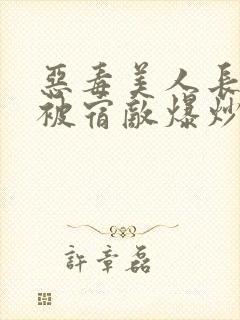 惡毒美人長
被宿敵爆炒
許章磊